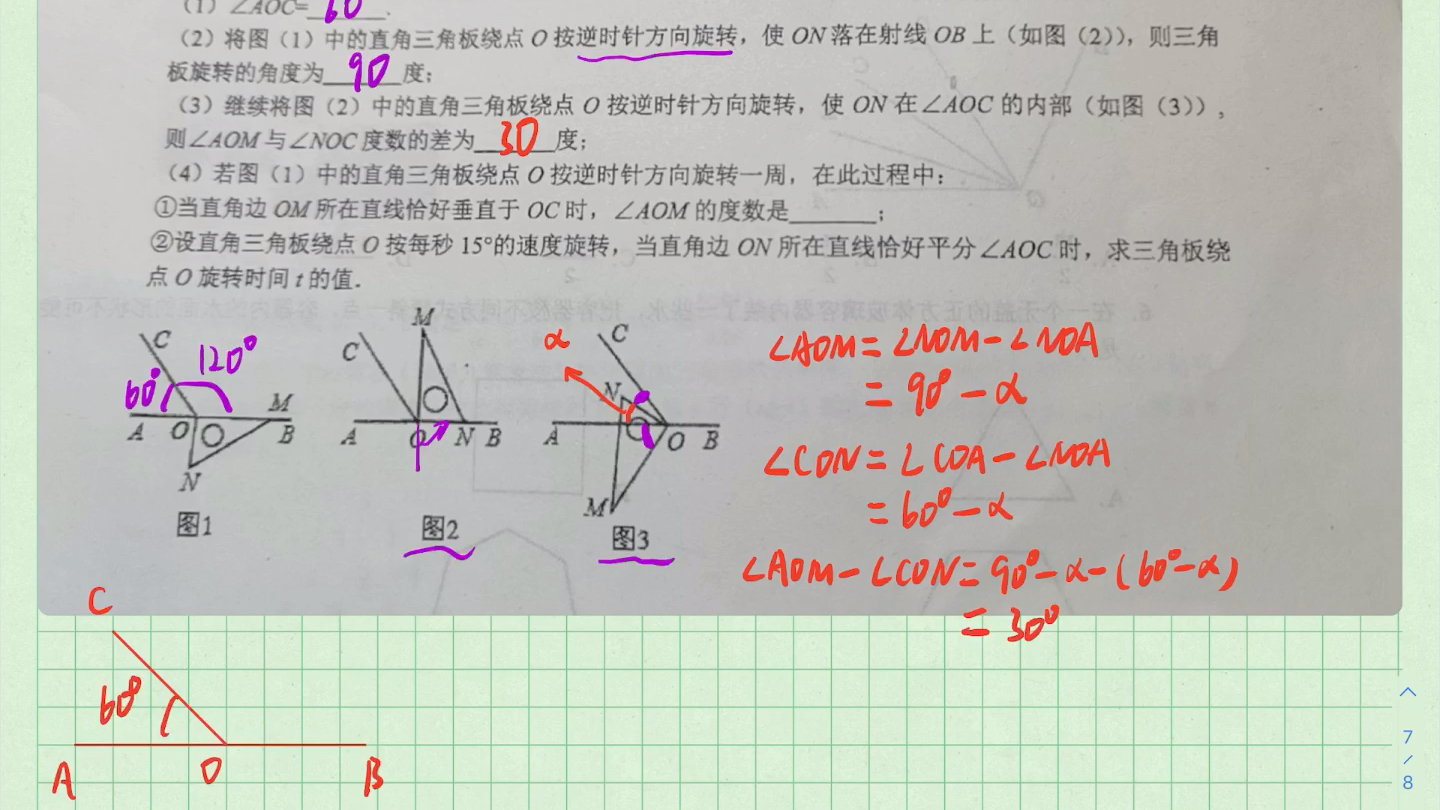 (1) ∠AOC=60.
(2)将图(1)中的直角三角板绕点 O 按逆时针方向旋转,使 ON 落在射线 OB 上(如图(2)),则三角
板旋转的角度为 90 度;
(3)继续将图(2)中的直角三角板绕点 O 按逆时针方向旋转,使 ON 在∠AOC 的内部(如图(3)),
则∠AOM 与∠NOC 度数的差为 30 度;
(4)若图(1)中的直角三角板绕点 O 按逆时针方向旋转一周,在此过程中:
①当直角边 OM 所在直线恰好垂直于 OC 时,∠AOM 的度数是______;
②设直角三角板绕点 O 按每秒 15°的速度旋转,当直角边 ON 所在直线恰好平分∠AOC 时,求三角板绕
点 O 旋转时间 t 的值.
C 120° 60° A O M B N
图1
M C A O N B
图2
α C N A O B M
图3
∠AOM=∠NOM-∠NOA
=90°-α
∠CON=∠COA-∠NOA
=60°-α
∠AOM-∠CON=90°-α-(60°-α)
=30°
C
60°
A O B
7
/
8